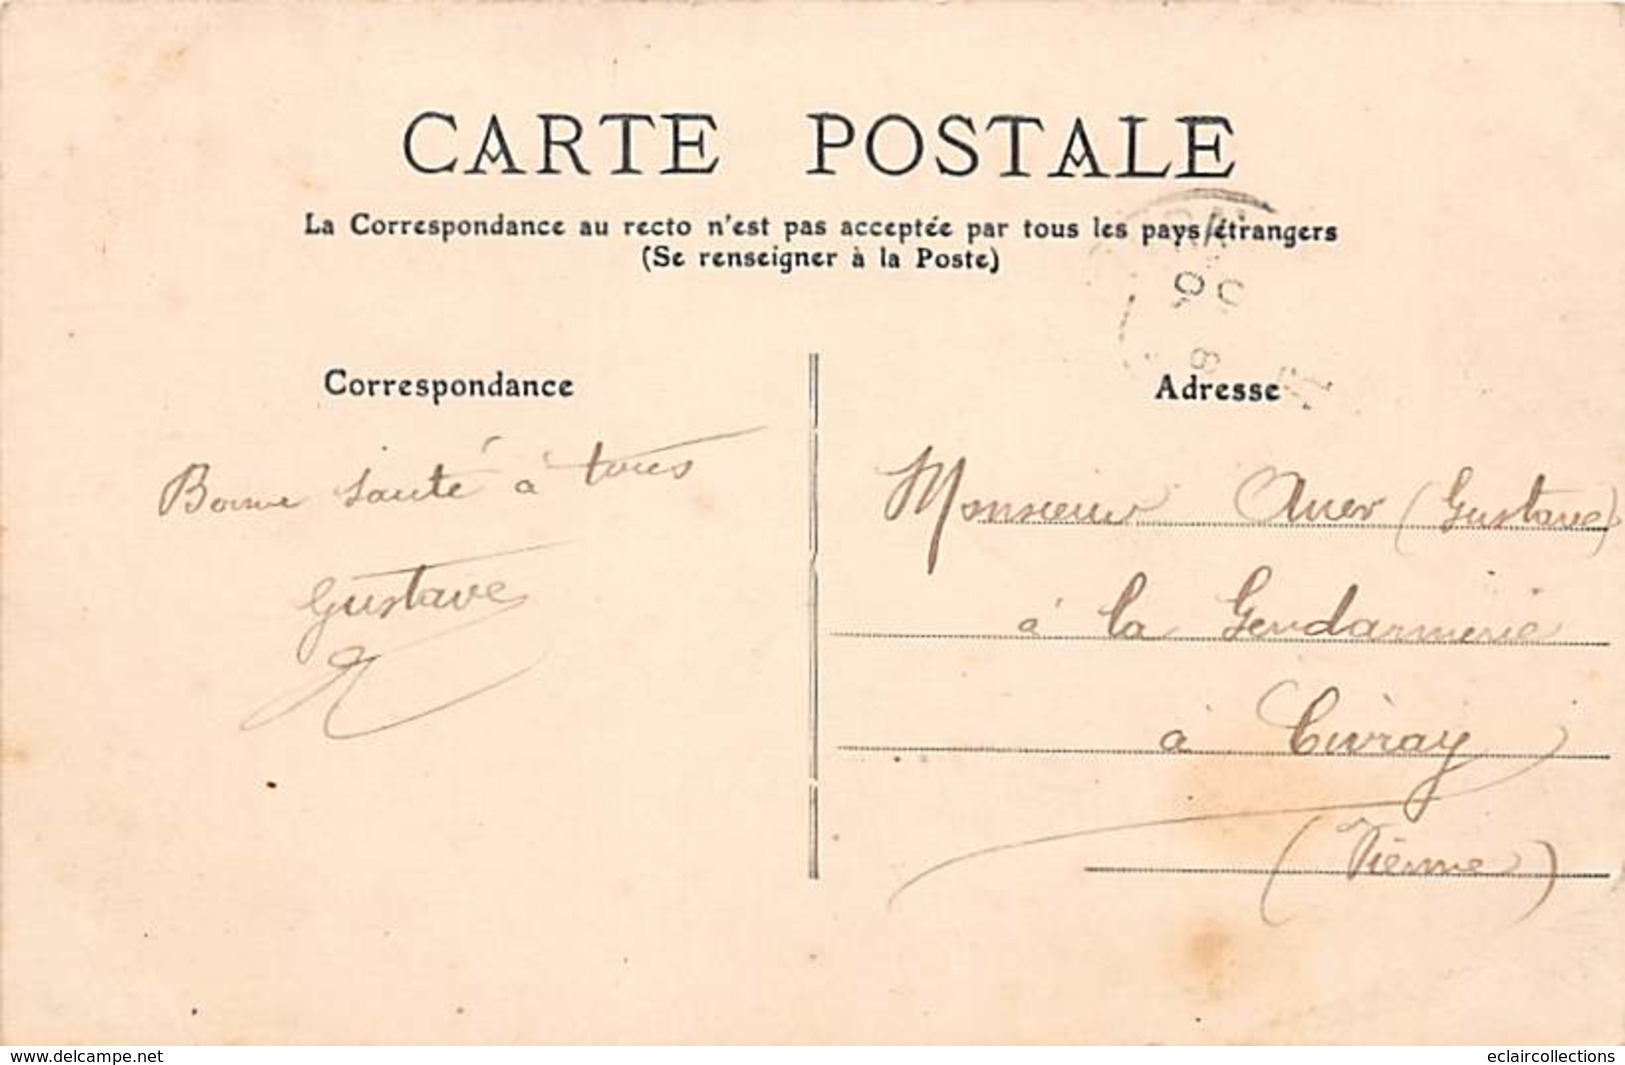 CARTE POSTALE
La Correspondance au recto n'est pas acceptée par tous les pays étrangers
(Se renseigner à la Poste)
Correspondance
Bonne santé à tous
Gustave
Adresse
Monsieur Auer (Gustave)
à la Gendarmerie
à Civray
(Vienne)
www.delcampe.net
eclaircollections